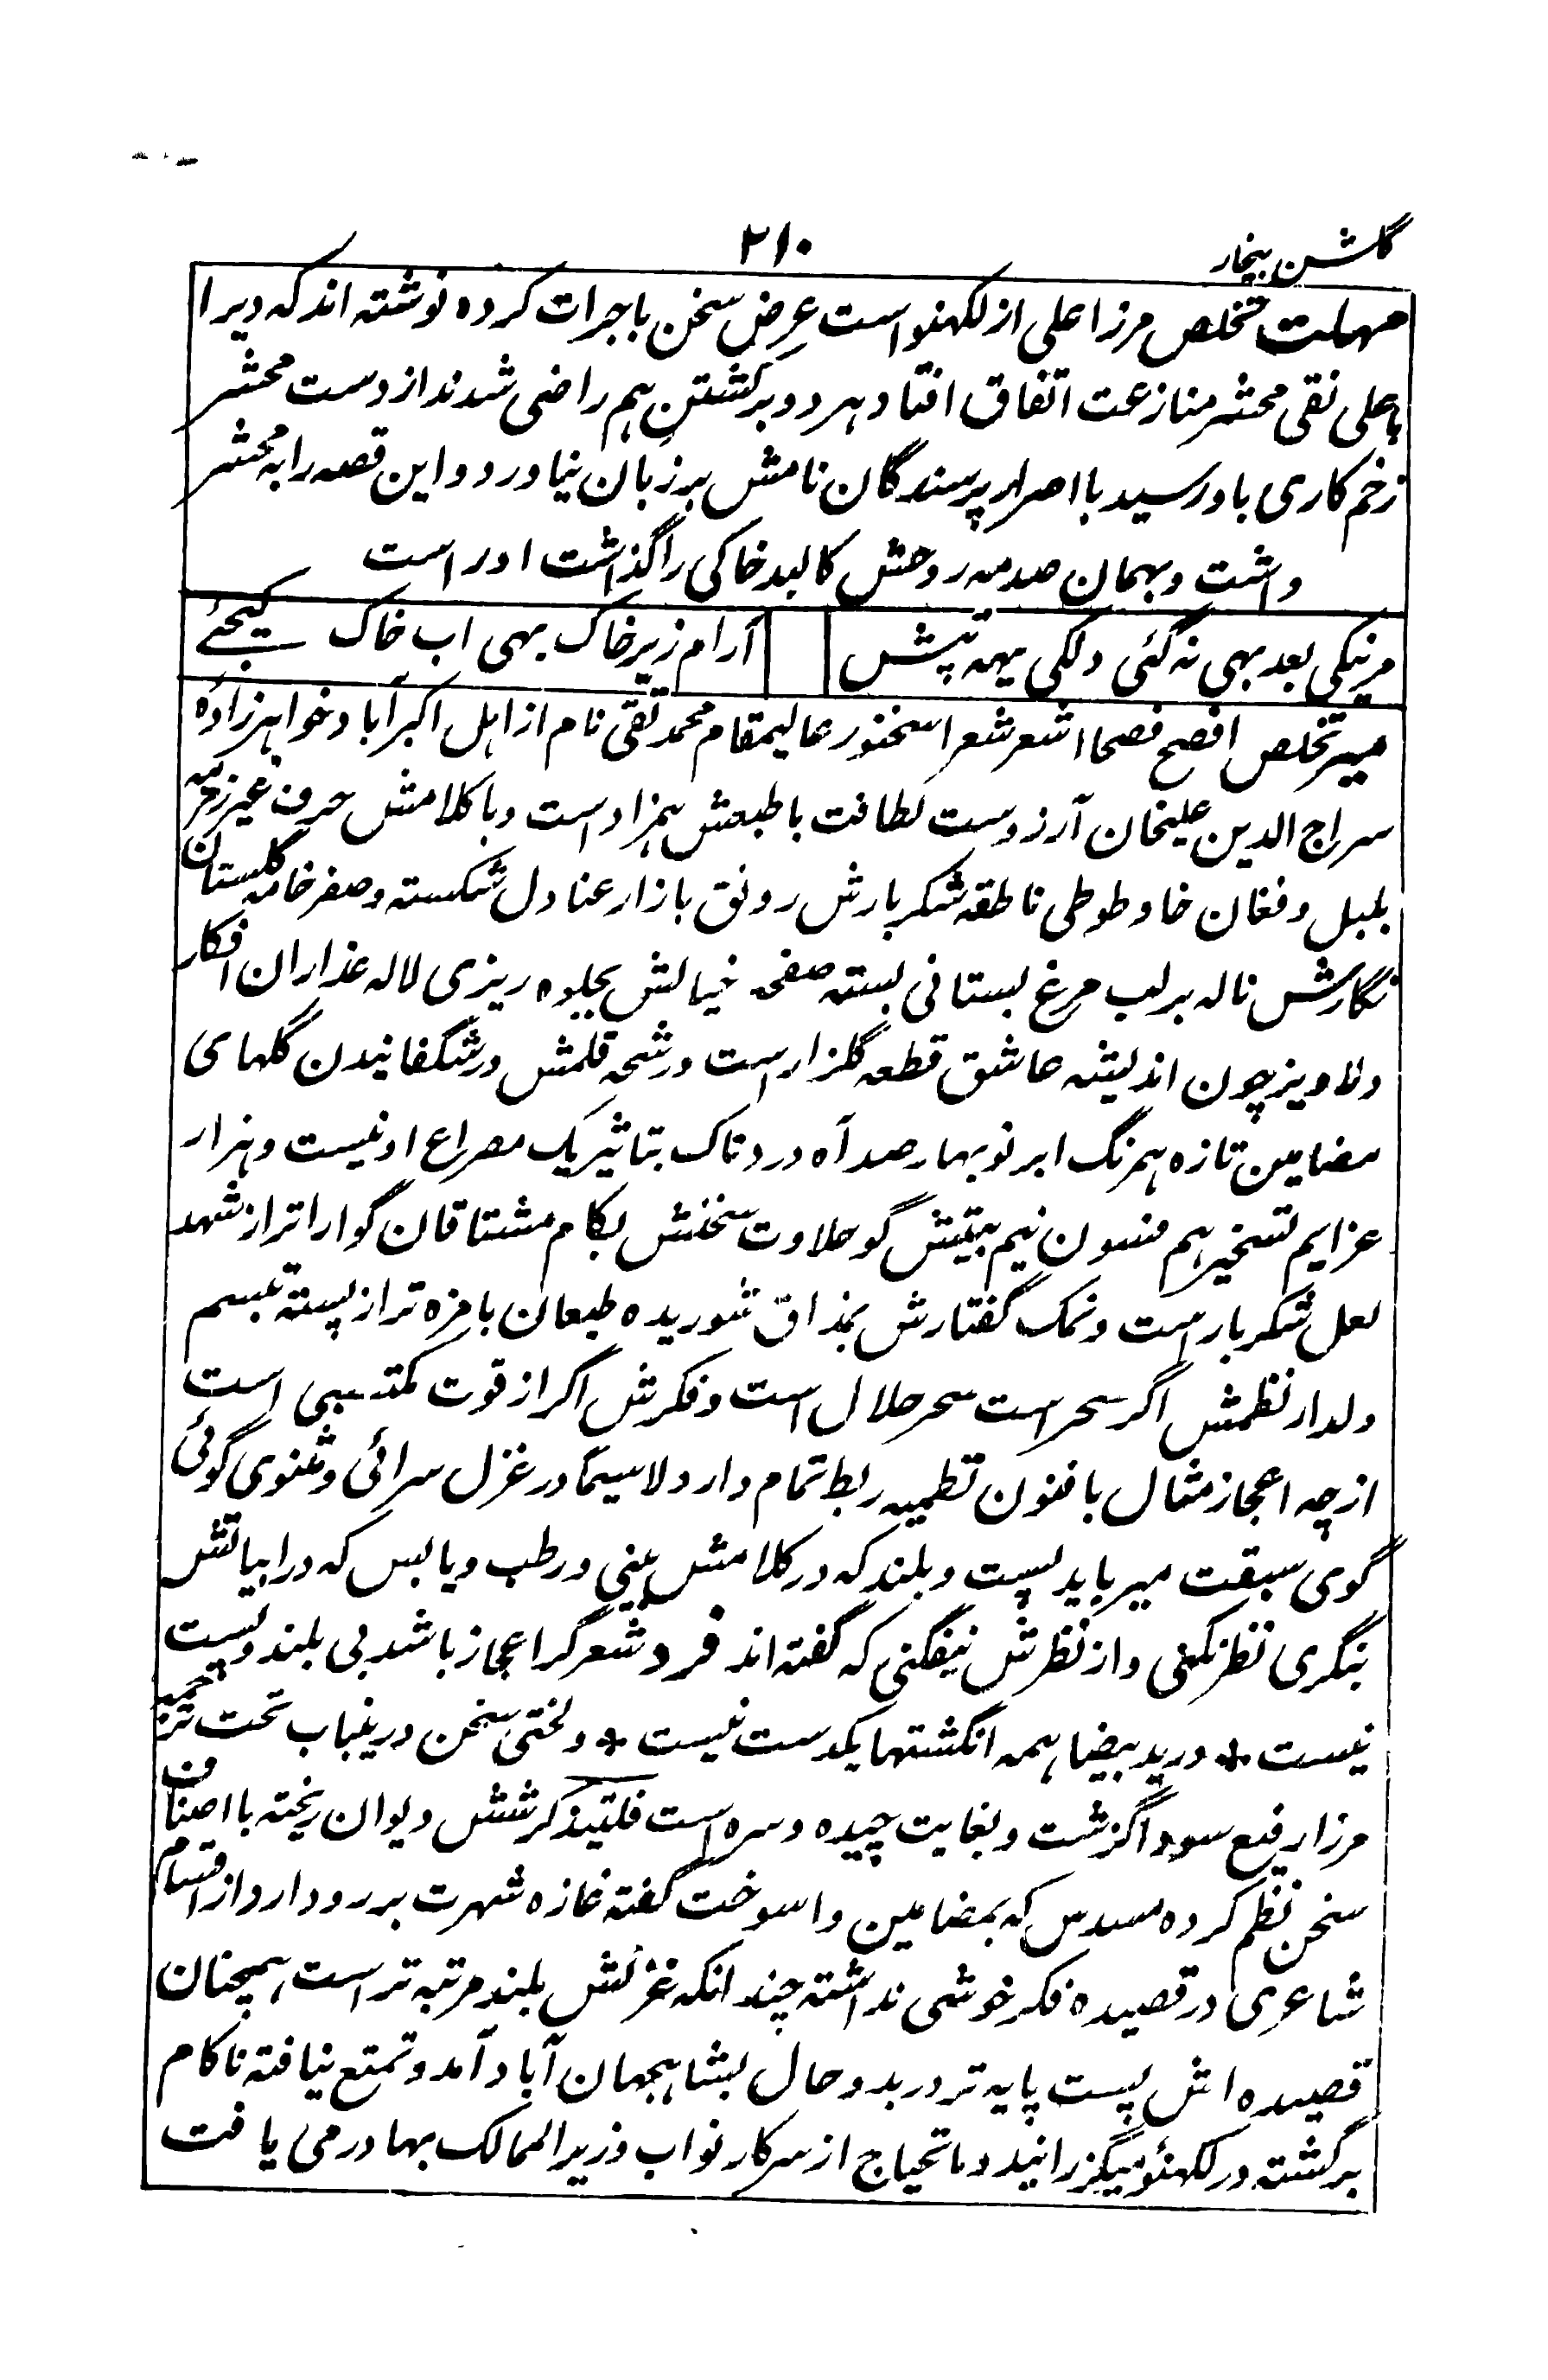 گلشن بیخار
۲۱۰
مہلت تخلص مرزا علی از لکہنو است عرض سخن با جرات کرده نوشته اند که ویرا
با علی نقی محشر منازعت اتفاق افتاد ہر دو بر کشتن ہم راضی شدند از دست محشر
زخم کاری باو رسید با اصرار پرسندگان نامش بر زبان نیاورد و این قصه را به محشر
داشت و بہمان صدمه روحش کالبد خاکی را گذاشت اوراست
مرنیکی بعد بہی نہ گئی دلکی یہہ تپش
آرام زیر خاک بہی اب خاک کیجئے
میر تخلص افصح فصحا اشعر شعرا سخنور عالیمقام محمد تقی نام از اہل اکبرآباد خواہرزاده
سراج الدین علیخان آرزوست لطافت با طبعش ہمزاد است و با کلامش حرف غیر زمزمه
بلبل و فغان خاد طوطی ناطقه شکر بارش رونق بازار عنادل شکسته و صفیر خامه گلستان
نگارش ناله بر لب مرغ بستانی بسته صفحه خیالش بجلوه ریزی لاله عذاران افکار
دلاویز چون اندیشه عاشق قطعه گلزار است و رشحه قلمش در شگفانیدن گلہای
مضامین تازه ہمرنگ ابر نوبہار صد آه دردناک بتاثیر یک مصراع او نیست و ہزار
عزایم تسخیر ہم فسون نیم بیتش گو حلاوت سخنش بکام مشتاقان گواراتر از شہد
لعل شکربار است و نمک گفتارش بمذاق شوریده طبعان بامزه تر از پسته تبسم
دلدار نظمش اگر سحر است سحر حلال است و فکرش اگر از قوت مکتسبی است
از چه اعجاز مثال با فنون نظمیه ربط تمام دارد لا سیما در غزل سرائی و مثنوی گوئی
گوی سبقت میرباید پست و بلند که در کلامش بینی و رطب و یابس که در ابیاتش
بنگری نظر نکنی و از نظرش نیفکنی که گفته اند فرد شعر گر اعجاز باشد بی بلند و پست
نیست * در ید بیضا ہمه انگشتہا یکدست نیست * و لختی سخن درینباب تحت ترجمه
مرزا رفیع سودا گزشت و بغایت چیده و سره است فلیتذکر شش دیوان ریخته با اصناف
سخن نظم کرده مسدس که بمضامین واسوخت گفته غازه شہرت بر رو دارد از اقسام
شاعری در قصیده فکر خوشی نداشته چندانکه غزلش بلند مرتبه تر است ہمچنان
قصیده اش پست پایه تر در بدو حال بشاہجہان آباد آمد و تمتع نیافته ناکام
برگشته در لکہنؤ میگزرانید و مایحتاج از سرکار نواب وزیر الممالک بہادر می یافت